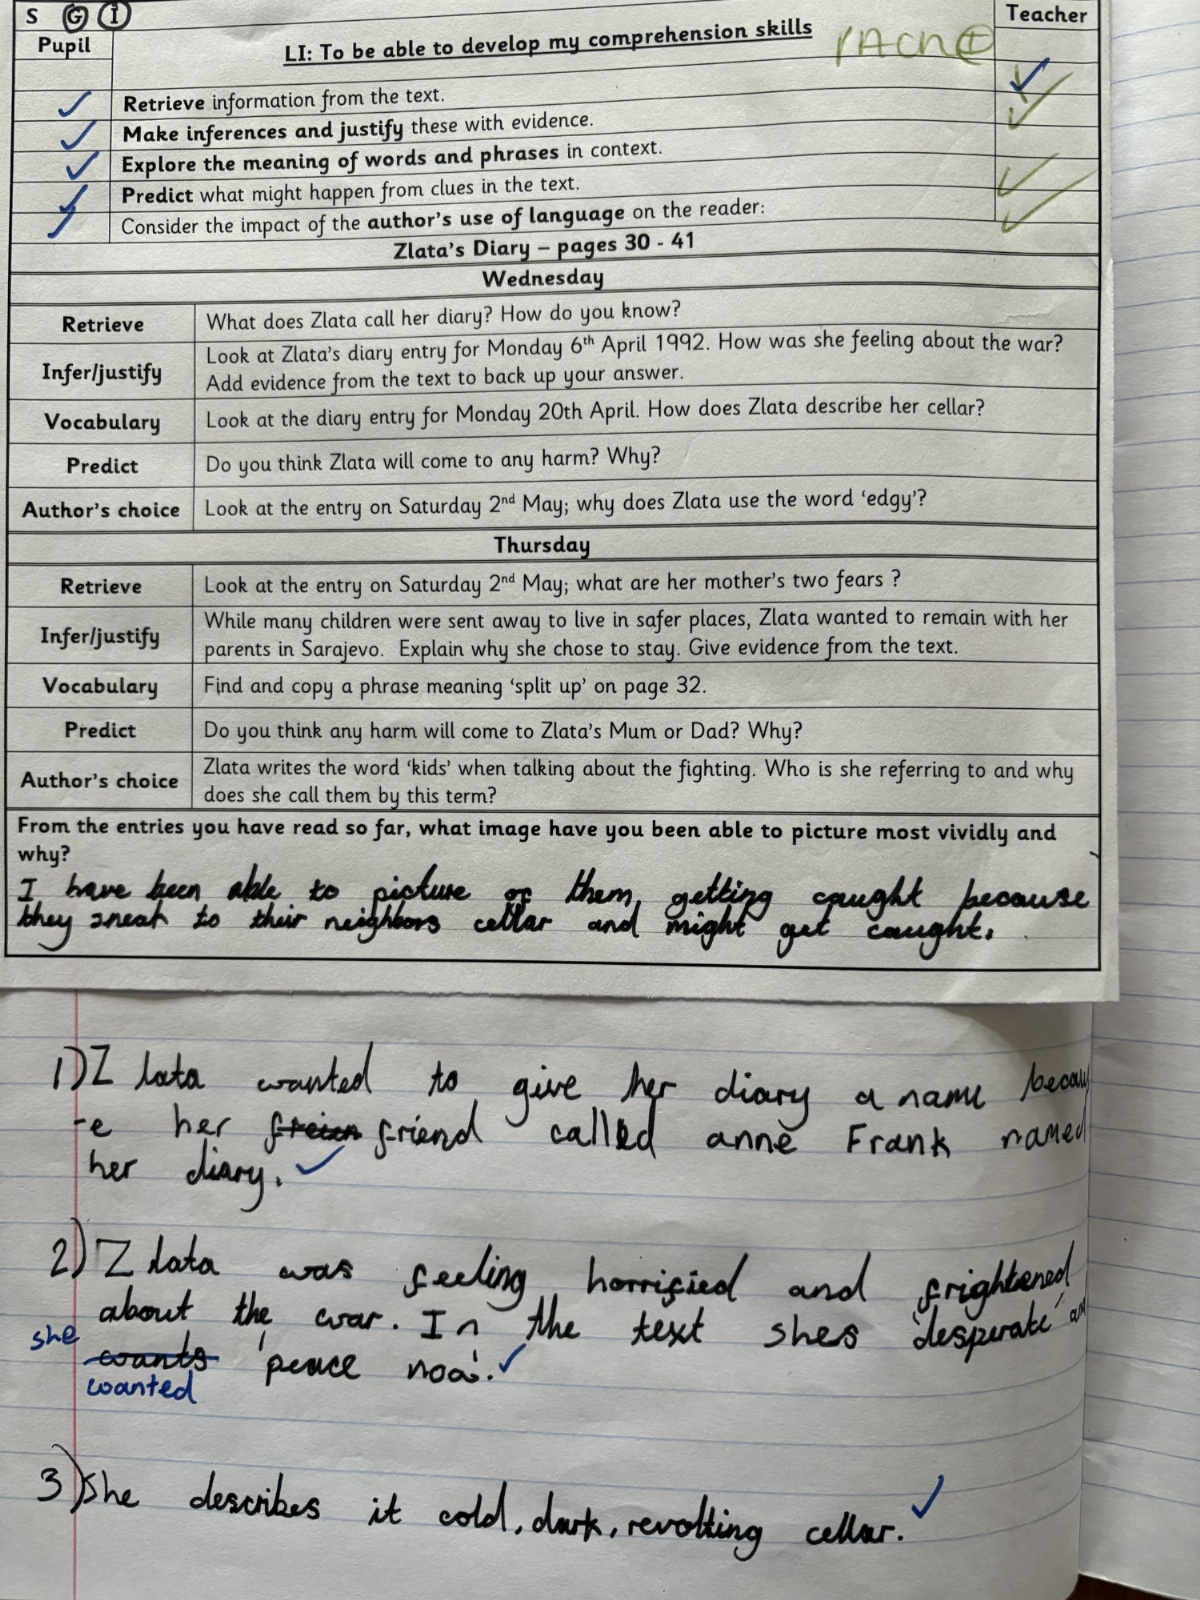 S G I
Pupil
LI: To be able to develop my comprehension skills
Teacher
Retrieve information from the text.
Make inferences and justify these with evidence.
Explore the meaning of words and phrases in context.
Predict what might happen from clues in the text.
Consider the impact of the author's use of language on the reader:
Zlata's Diary – pages 30 - 41
Wednesday
Retrieve What does Zlata call her diary? How do you know?
Infer/justify Look at Zlata's diary entry for Monday 6th April 1992. How was she feeling about the war?
Add evidence from the text to back up your answer.
Vocabulary Look at the diary entry for Monday 20th April. How does Zlata describe her cellar?
Predict Do you think Zlata will come to any harm? Why?
Author's choice Look at the entry on Saturday 2nd May; why does Zlata use the word 'edgy'?
Thursday
Retrieve Look at the entry on Saturday 2nd May; what are her mother's two fears ?
Infer/justify While many children were sent away to live in safer places, Zlata wanted to remain with her
parents in Sarajevo. Explain why she chose to stay. Give evidence from the text.
Vocabulary Find and copy a phrase meaning 'split up' on page 32.
Predict Do you think any harm will come to Zlata's Mum or Dad? Why?
Author's choice Zlata writes the word 'kids' when talking about the fighting. Who is she referring to and why
does she call them by this term?
From the entries you have read so far, what image have you been able to picture most vividly and
why?
I have been able to picture of them getting caught because
they sneak to their neighbors cellar and might get caught.
1) Zlata wanted to give her diary a name becau
-e her friend called anne Frank named
her diary.
2) Zlata was feeling horrified and frightened
about the war. In the text shes 'desperate' an
she wants 'peace now'.
wanted
3) She describes it cold, dark, revolting cellar.